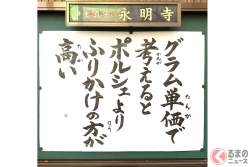 永明寺
グラム単価で
たんか
考えると
かんが
ポルシェより
ふりかけの方が
ほう
高い
たか
くるまの
ニュース